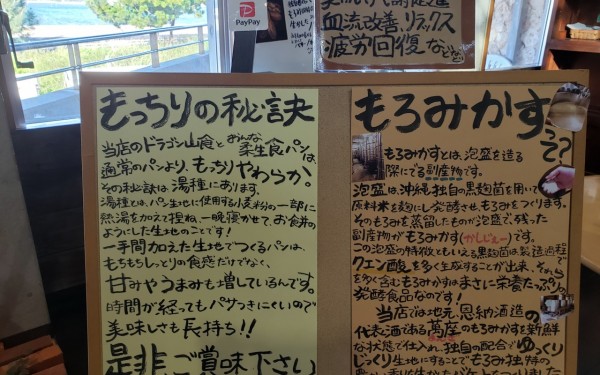 PayPay
血流改善、リラックス
疲労回復 など
もっちりの秘訣
当店のドラゴン山食と おんな 柔生食パンは、
通常のパンより、もっちりやわらか。
その秘訣は湯種にあります。
湯種とは、パン生地に使用する小麦粉の一部に
熱湯を加えて捏ね、一晩寝かせて、お餅の
ようにした生地のことです!
一手間加えた生地でつくるパンは、
もちもちしっとりの食感だけでなく、
甘みやうまみも増しているんです。
時間が経ってもパサつきにくいので
美味しさも長持ち!!
是非ご賞味下さい
もろみかすって?
もろみかすとは、泡盛を造る
際にでる副産物です。
泡盛は、沖縄独自の黒麹菌を用いて
原料米を麹にし発酵させ、もろみをつくります。
そのもろみを蒸留したものが泡盛で、残った
副産物がもろみかす(かしじぇー)です。
この泡盛の特徴ともいえる黒麹菌は製造過程で
クエン酸を多く生成することが出来、それら
を多く含むもろみかすはまさに栄養たっぷりの
発酵食品なのです!
当店では地元、恩納酒造の
代表酒である萬座のもろみかすを新鮮
な状態で仕入れ、独自の配合でゆっくり
じっくり生地にすることでもろみ独特の